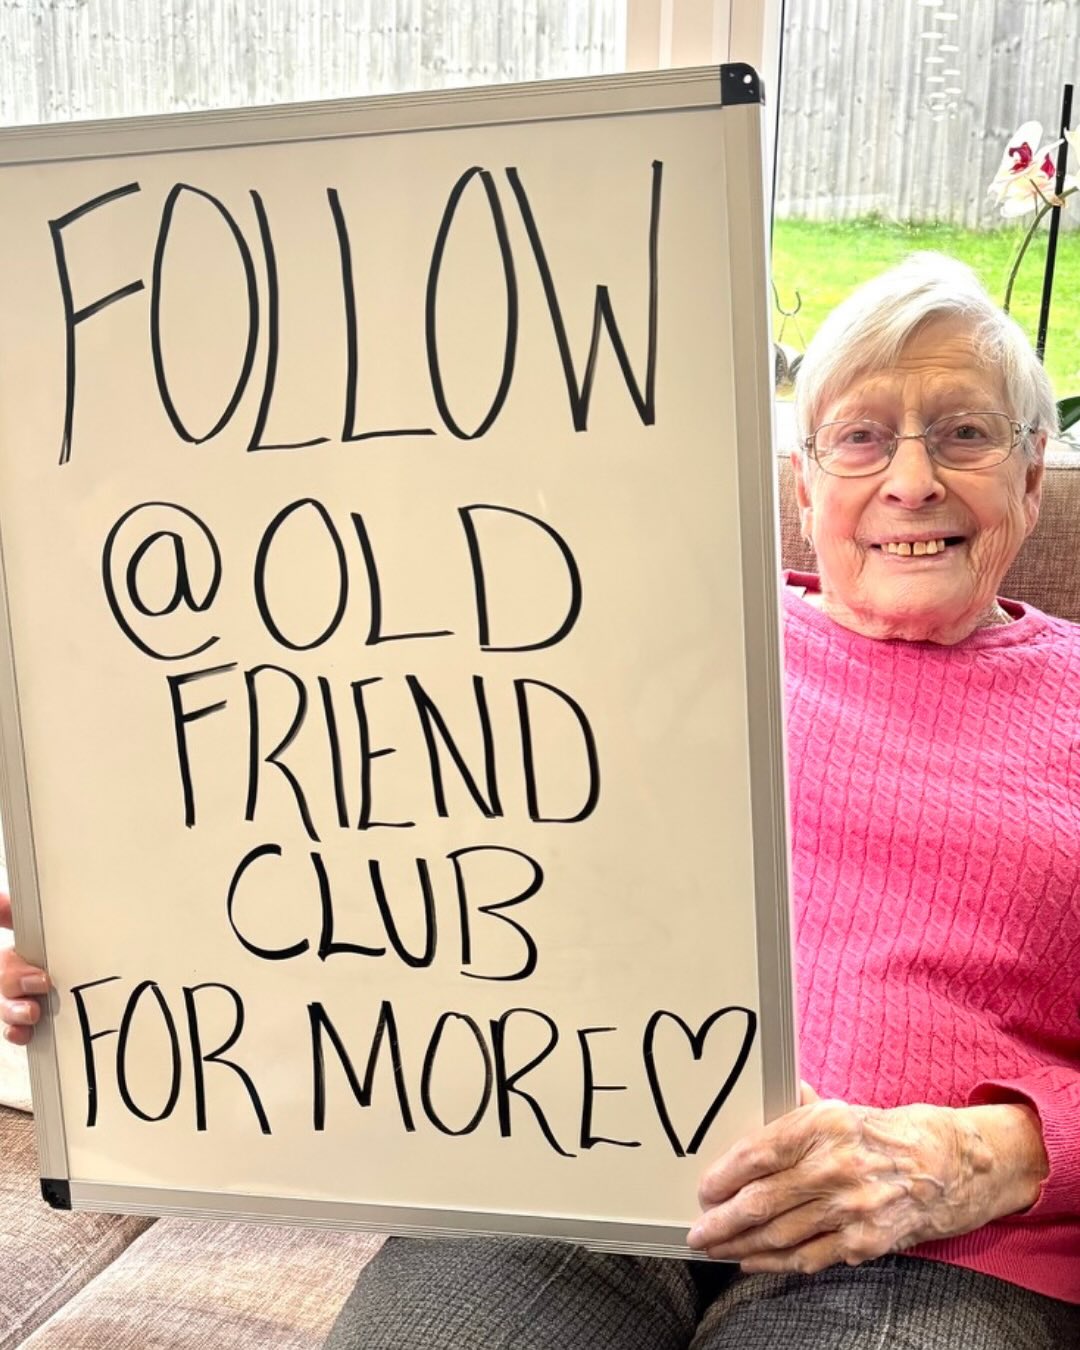 FOLLOW
@OLD
FRIEND
CLUB
FOR MORE♡